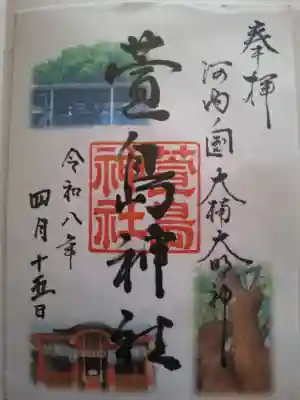 奉拝
河内国大楠大明神
萱島神社
萱島神社
令和八年
四月十五日